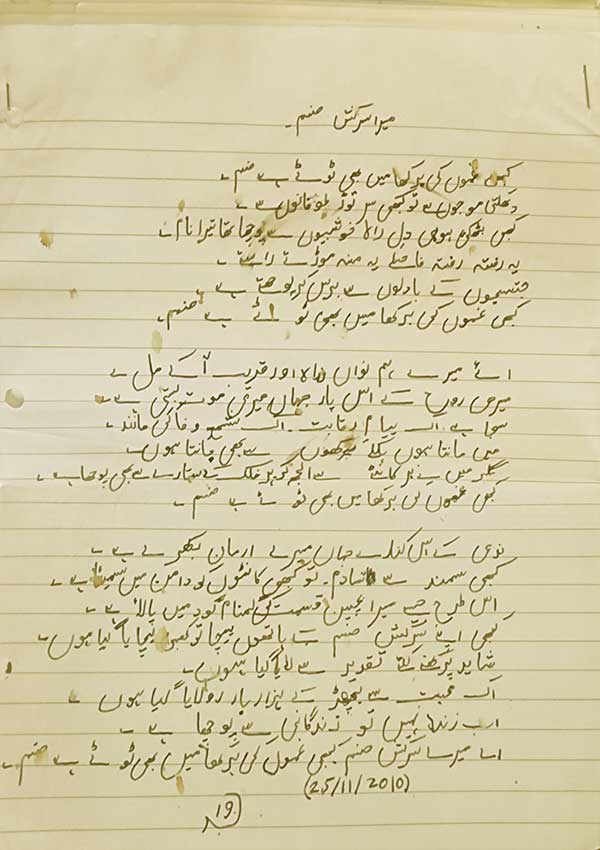 میرا سرکش صنم ۔
کبھی غموں کی برکھا میں بھی تو نے ہے صنم ۔
موجوں سے تو کبھی سر توڑ طوفانوں سے ۔
کبھی ہوئی دل راہ خوشبوں سے پوچھا تھا تیرا نام ۔
یہ رفتہ رفتہ فاصلے یہ منہ موڑتے راستے ۔
کے بادلوں سے برس کر پوچھتے ہے ۔
کبھی غموں کی برکھا میں بھی تو نے ہے صنم ۔
اے میرے ہم نواں اور قریب آ کے مل لے
میری روح کے اس پار جہاں میری موت بستی ہے ۔
اک پیام رقابت ۔ اک ستمِ وفا کی مانند ۔
میں مانتا ہوں سے بھی مانتا ہوں ۔
مگر میں نے ہر سے الجھ کر ہر فلک کے ستارے سے بھی پوچھا ہے ۔
کبھی غموں کی برکھا میں بھی تو نے ہے صنم ۔
ندی کے اس کنارے جہاں میرے ارمان بکھرے ہے ۔
کبھی سمندر سے تو کبھی کانٹوں کو دامن میں سمیٹا ہے ۔
اس طرح جسے میرا بچپن قسمت کی گمنام گود میں پالا ہے ۔
کبھی اے سرکش صنم کے ہاتھوں بیچا تو کبھی بچایا گیا ہوں ۔
شاید پرکھنے کیلئے تقدیر سے گیا ہوں ۔
اک محبت سے بچھڑ کے ہزار بار رولایا گیا ہوں
اب زندہ نہیں تو زندگانی سے پوچھا ہے ۔
اے میرے سرکش صنم کبھی غموں کی برکھا میں بھی تو نے ہے صنم ۔
(25/11/2010)
19